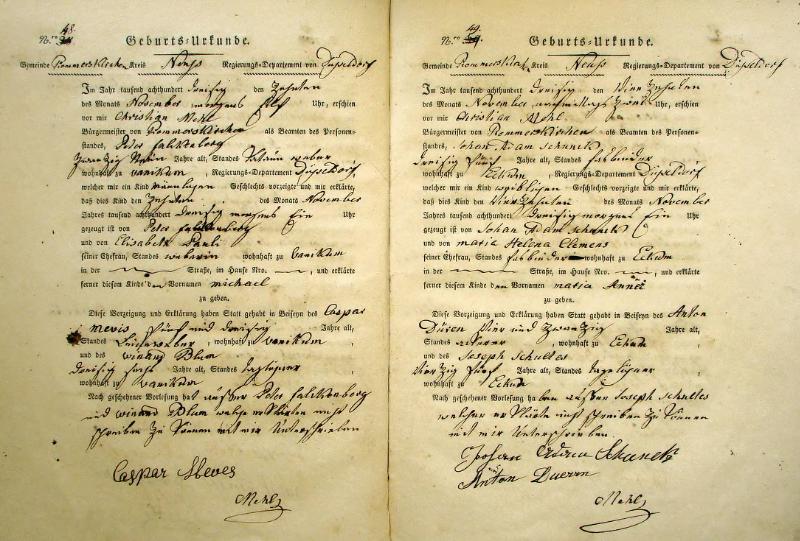 N.ro 48.
Geburts-Urkunde.
Gemeinde Rommerskirchen Kreis Neuß Regierungs-Departement von Düsseldorf
Im Jahr tausend achthundert dreisig den Zehnten
des Monats November morgens Elf Uhr, erschien
vor mir Christian Mehl
Bürgermeister von Rommerskirchen als Beamten des Personen-
standes, Peter Falkenberg
zwanzig Neun Jahre alt, Standes weber
wohnhaft zu vanikum, Regierungs-Departement Düsseldorf,
welcher mir ein Kind männlichen Geschlechts vorzeigte und mir erklärte,
daß dies Kind den Zehnten des Monats November
Jahres tausend achthundert dreisig morgens Ein Uhr
gezeugt ist von Peter Falkenberg
und von Elisabeth Pauli
seiner Ehefrau, Standes weberin wohnhaft zu vanikum
in der Straße, im Hause Nro. , und erklärte
ferner diesem Kinde den Vornamen michael
zu geben.
Diese Vorzeigung und Erklärung haben Statt gehabt in Beiseyn des Caspar
mevis fünf und dreisig Jahre alt,
Standes Leineweber, wohnhaft zu vanikum
und des winand Blum
dreisig sechs Jahre alt, Standes taglöhner
wohnhaft zu vanikum
Nach geschehener Vorlesung hat außer Peter Falkenberg
und winand Blum welche erklärten nicht
schreiben zu können mit mir Unterschrieben
Caspar Meves
Mehl
N.ro 49.
Geburts-Urkunde.
Gemeinde Kreis Neuß Regierungs-Departement von Düsseldorf
Im Jahr tausend achthundert dreisig den Vierzehnten
des Monats November nachmittags zwei Uhr, erschien
vor mir Christian Mehl
Bürgermeister von Rommerskirchen als Beamten des Personen-
standes, Johan Adam Schunck
dreisig fünf Jahre alt, Standes faßbinder
wohnhaft zu Eckum, Regierungs-Departement Düsseldorf
welcher mir ein Kind weiblichen Geschlechts vorzeigte und mir erklärte,
daß dies Kind den Vierzehnten des Monats November
Jahres tausend achthundert dreisig morgens Ein Uhr
gezeugt ist von Johan Adam Schunck
und von maria Helena Clemens
seiner Ehefrau, Standes faßbinder wohnhaft zu Eckum
in der Straße, im Hause Nro. , und erklärte
ferner diesem Kinde den Vornamen maria Anna
zu geben.
Diese Vorzeigung und Erklärung haben Statt gehabt in Beiseyn des Anton
Düren vier und zwanzig Jahre alt,
Standes ackerer, wohnhaft zu Eckum
und des Joseph Schultes
vierzig fünf Jahre alt, Standes tagelöhner
wohnhaft zu Eckum
Nach geschehener Vorlesung haben außer Joseph Schultes
welcher erklärte nicht schreiben zu können
mit mir Unterschrieben.
Johan Schunck
Anton Duerrn
Mehl